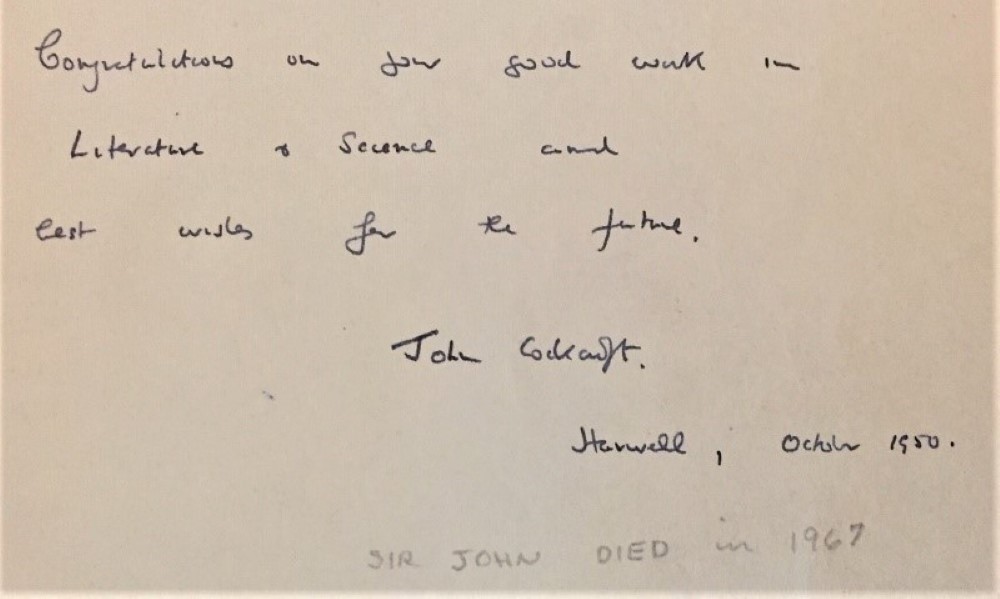 Congratulations on your good work in
Literature & Science and
best wishes for the future.
John Cockcroft.
Harwell, October 1950.
SIR JOHN DIED in 1967